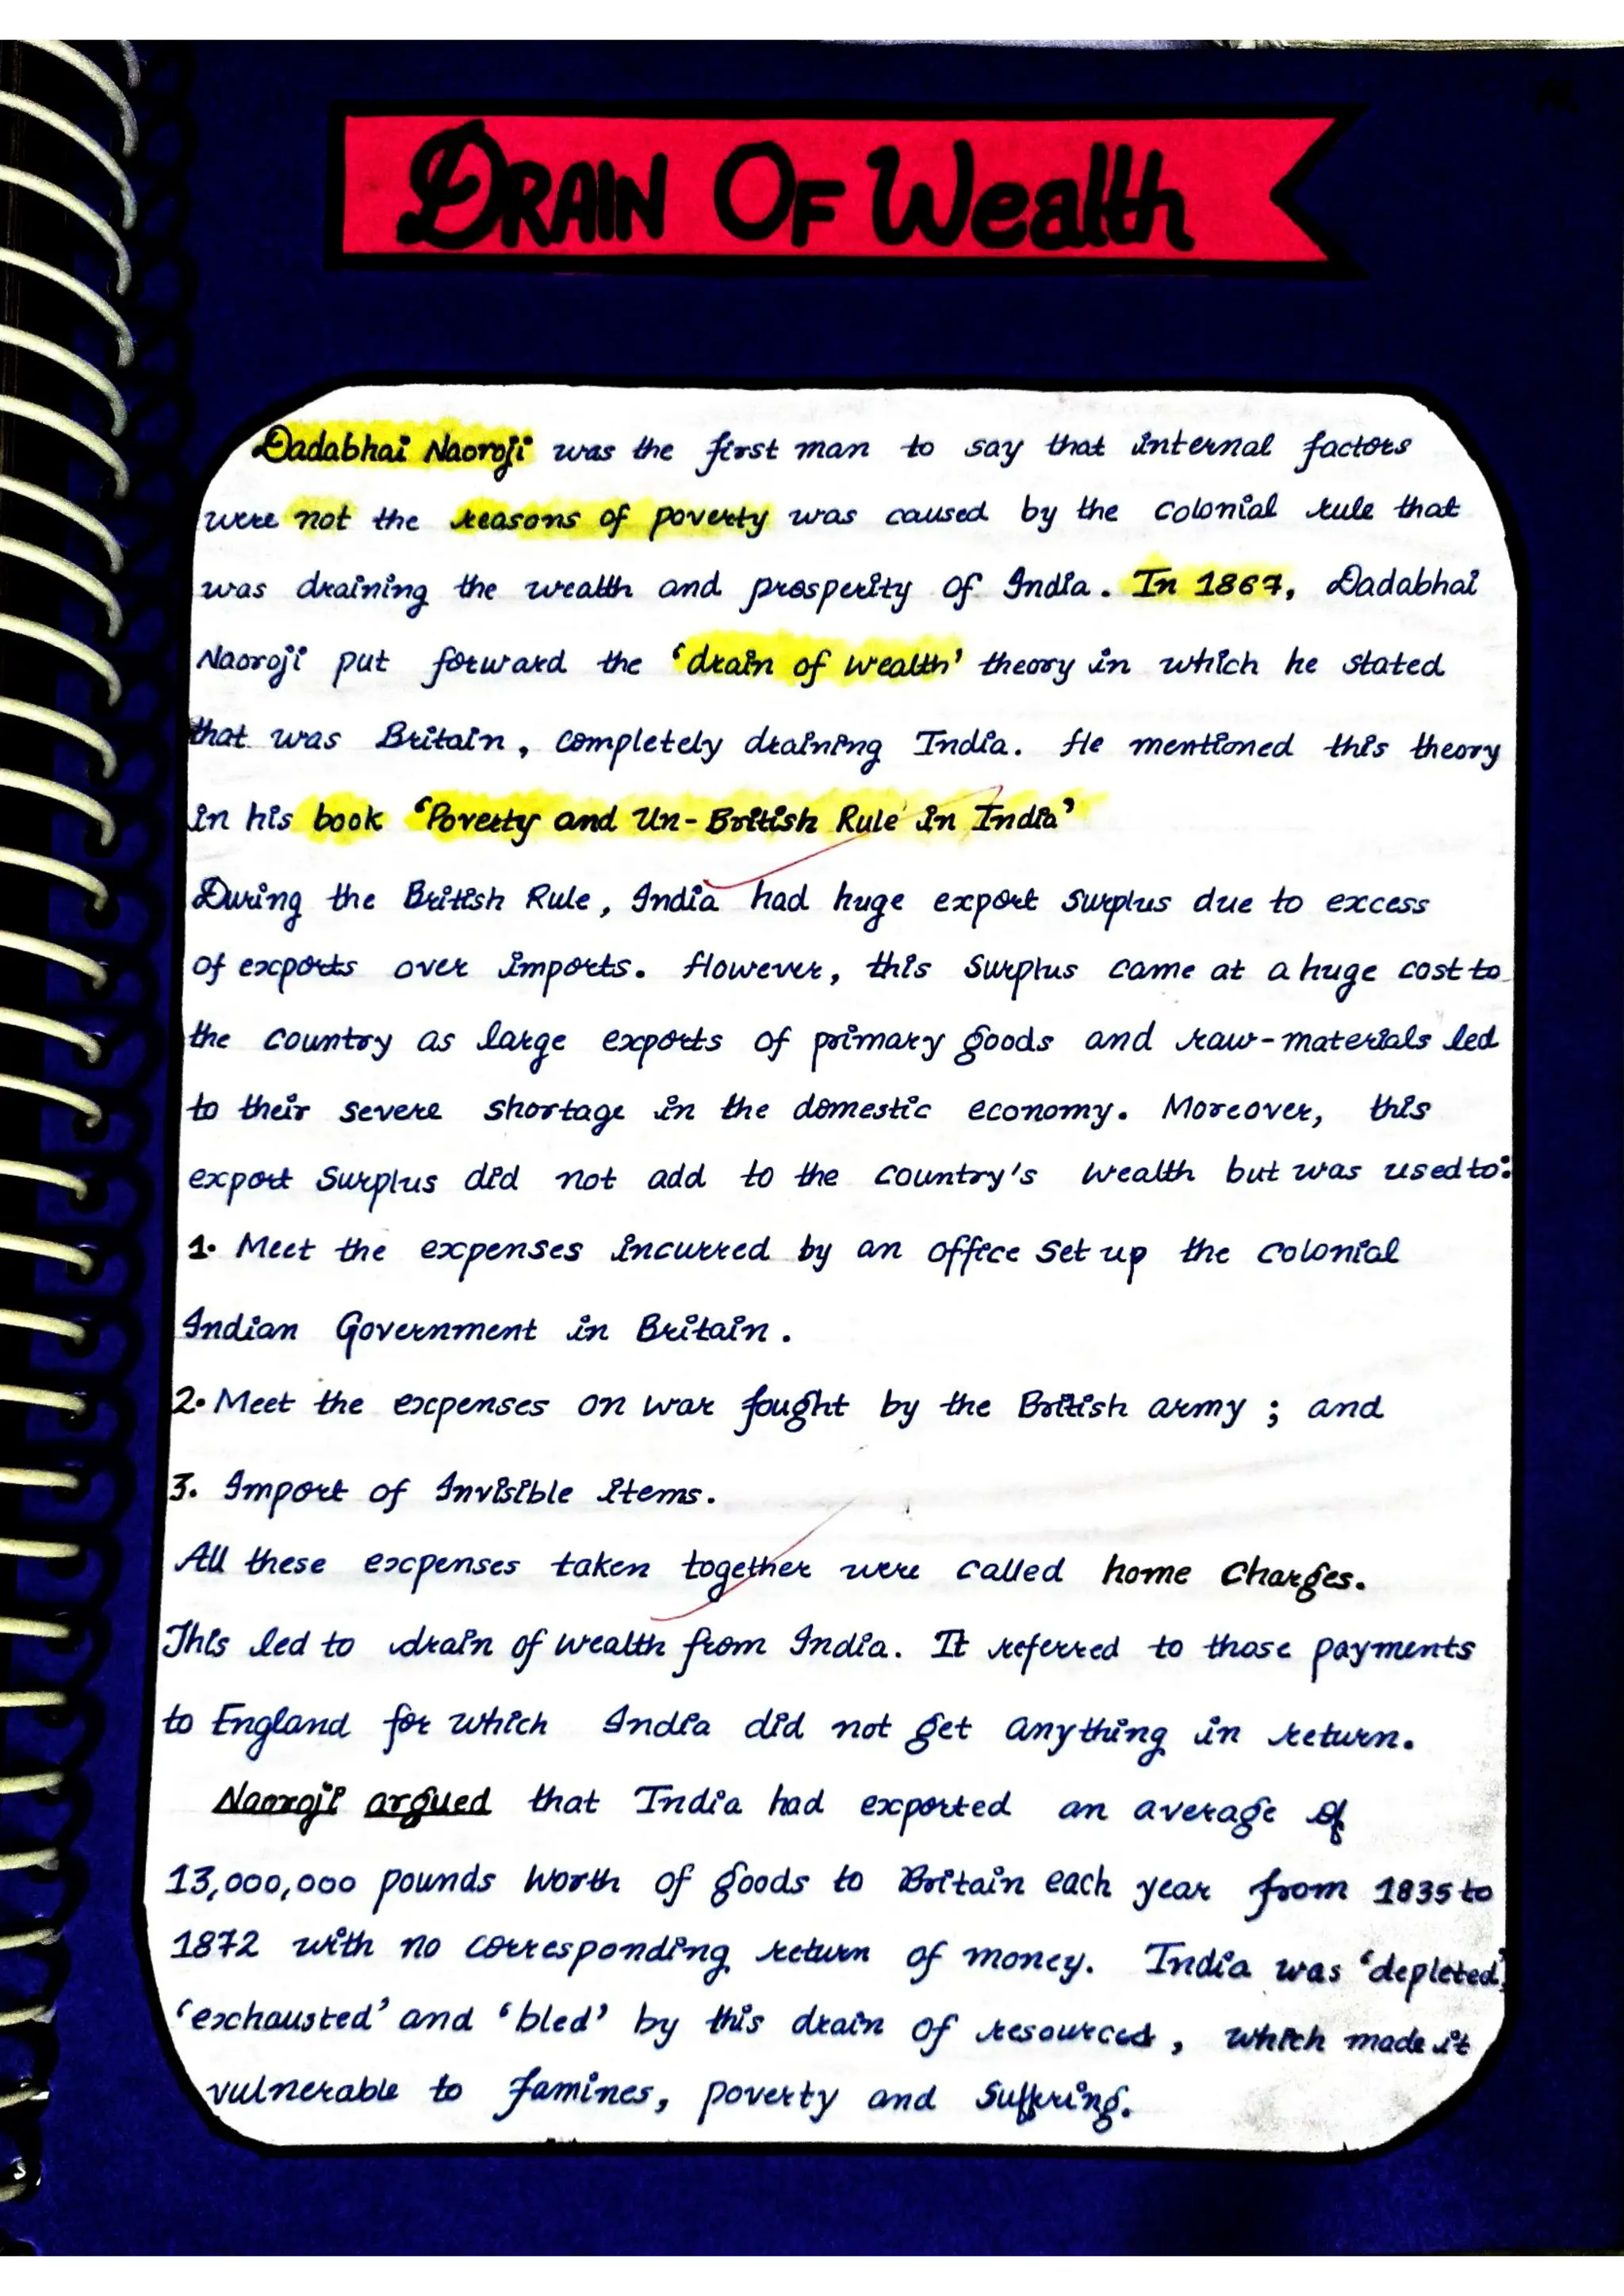 DRAIN OF Wealth
Dadabhai Naoroji was the first man to say that internal factors
were not the reasons of poverty was caused by the colonial rule that
was draining the wealth and prosperity of India. In 1867, Dadabhai
Naoroji put forward the 'drain of wealth' theory in which he stated
that was Britain, completely draining India. He mentioned this theory
in his book 'Poverty and Un-British Rule in India'
During the British Rule, India had huge export surplus due to excess
of exports over imports. However, this surplus came at a huge cost to
the country as large exports of primary goods and raw-materials led
to their severe shortage in the domestic economy. Moreover, this
export surplus did not add to the country's wealth but was used to:
1. Meet the expenses incurred by an office set up the colonial
Indian Government in Britain.
2. Meet the expenses on war fought by the British army ; and
3. Import of Invisible items.
All these expenses taken together were called home charges.
This led to drain of wealth from India. It referred to those payments
to England for which India did not get anything in return.
Naoroji argued that India had exported an average of
13,000,000 pounds worth of goods to Britain each year from 1835 to
1872 with no corresponding return of money. India was 'depleted',
'exhausted' and 'bled' by this drain of resourced, which made it
vulnerable to famines, poverty and suffring.